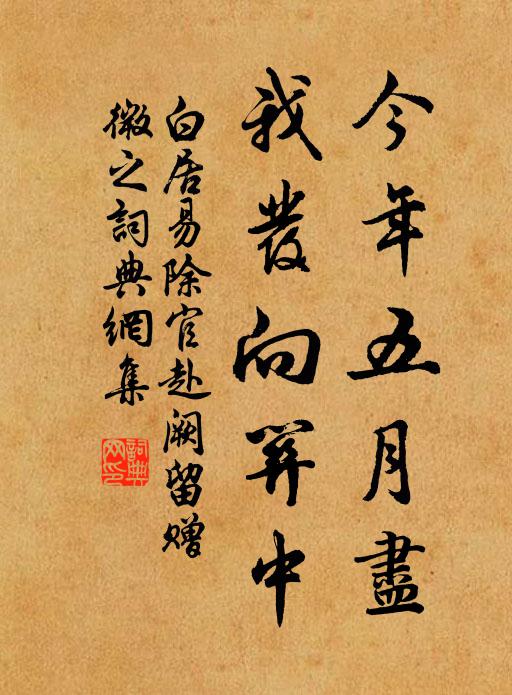 今年五月盡
我發向關中
白居易除官赴闕留贈
微之詞典網集
詞典
网印